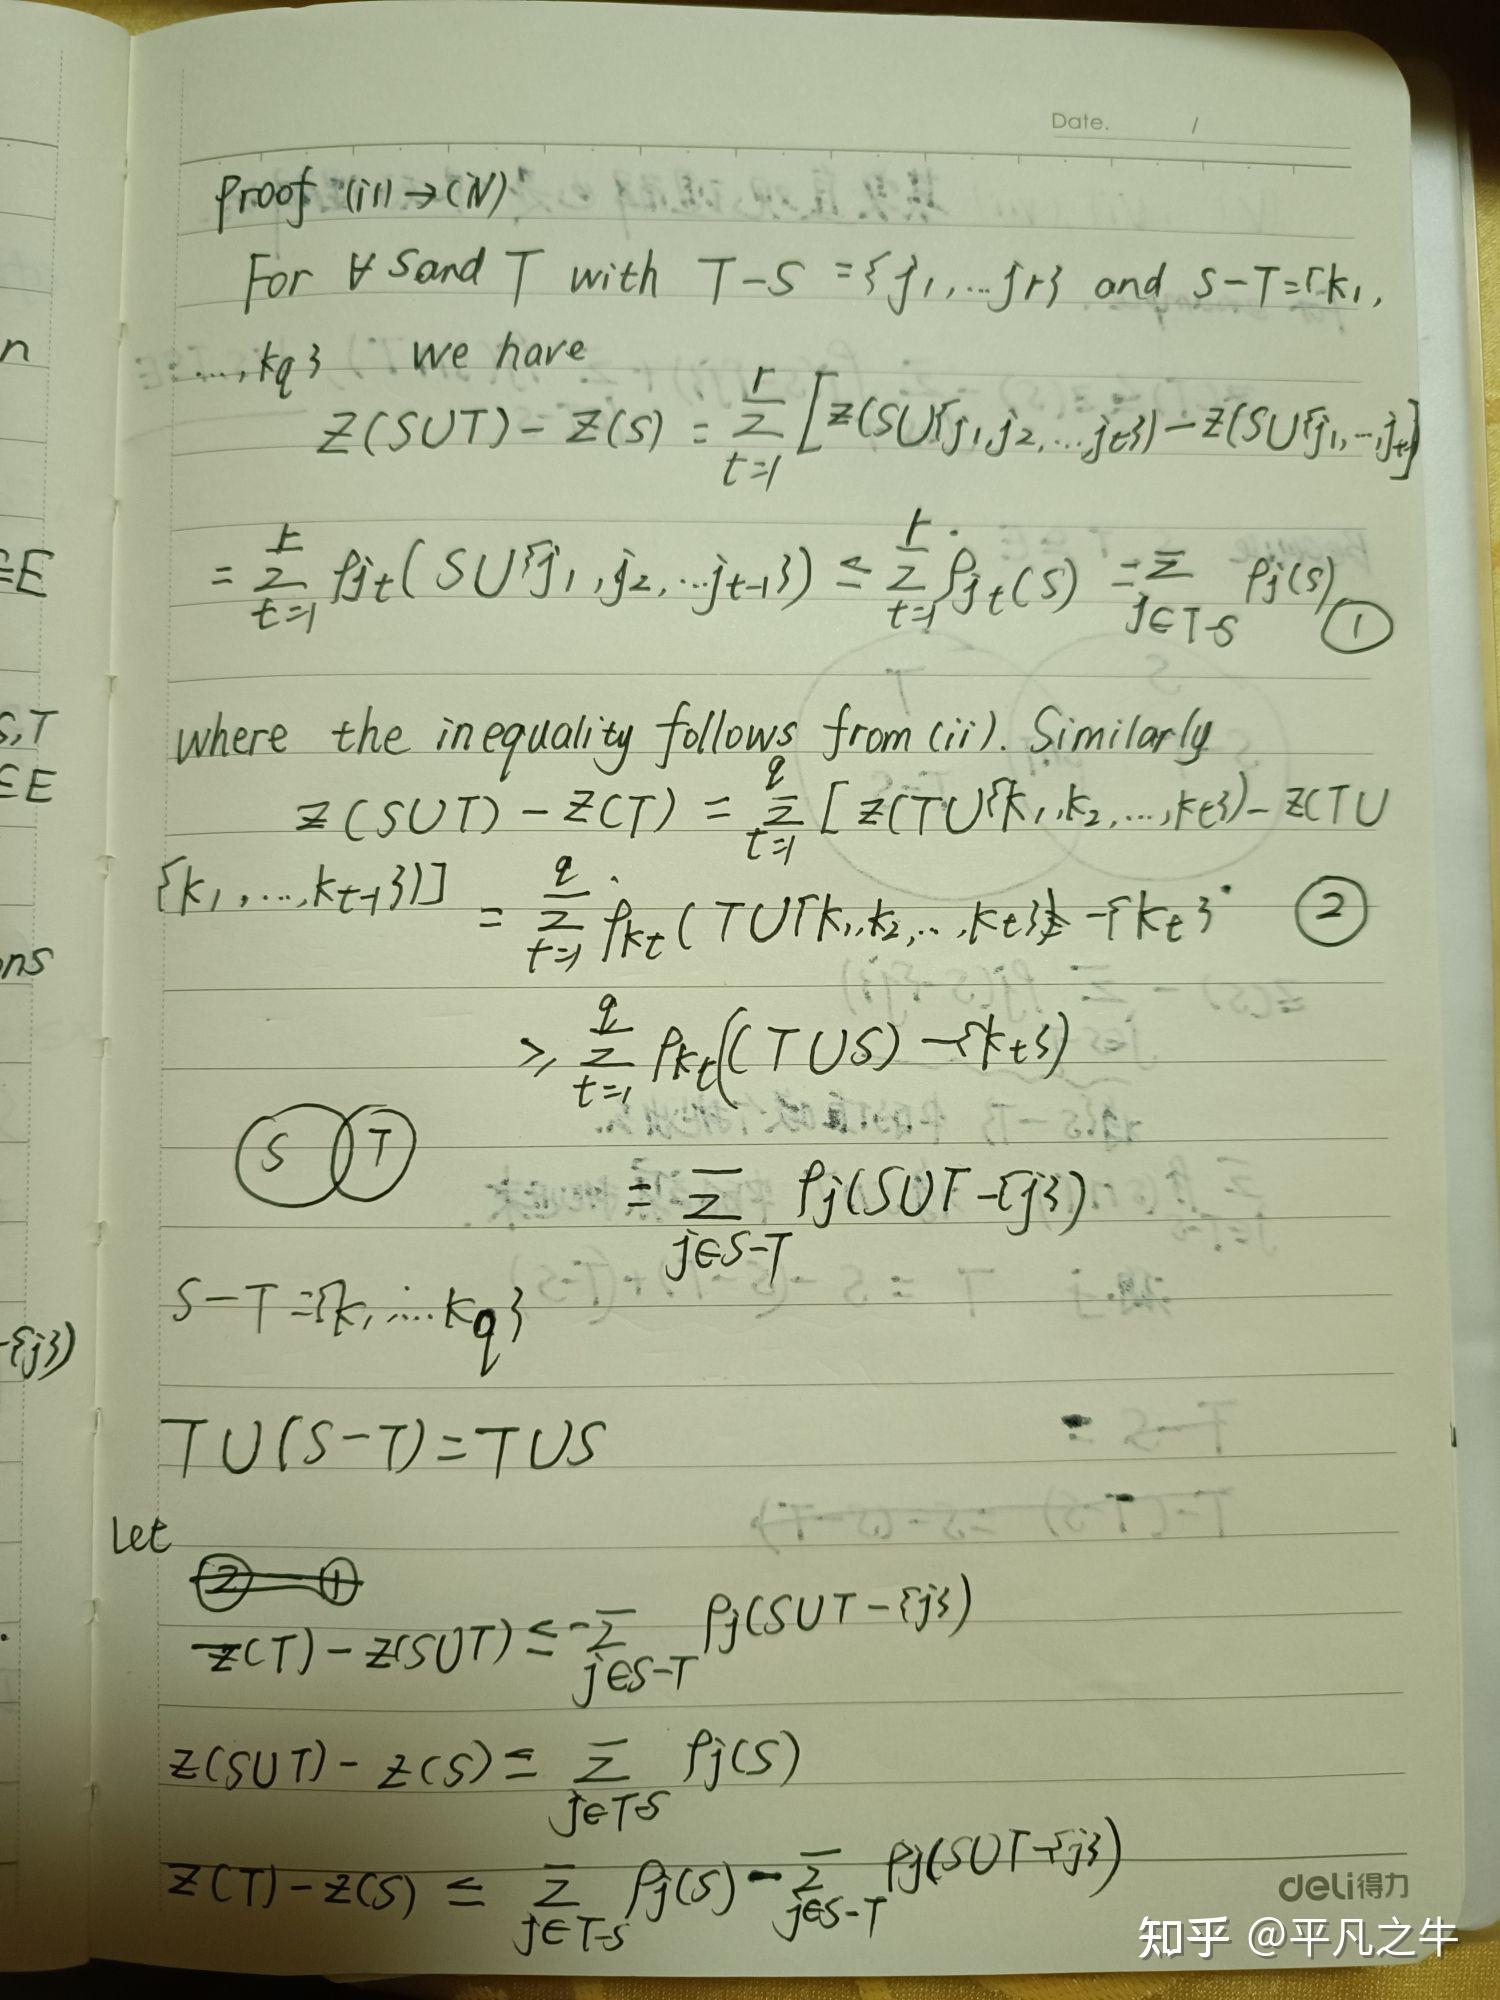 Date. /
Proof (ii) → (iv)
For ∀ S and T with T-S = {j1, ... jr} and S-T = {k1,
..., kq} we have
Z(S∪T) - Z(S) = Σ_{t=1}^{r} [Z(S∪{j1, j2, ..., jt}) - Z(S∪{j1, ..., jt-1}]
= Σ_{t=1}^{r} ρjt(S∪{j1, j2, ... jt-1}) ≤ Σ_{t=1}^{r} ρjt(S) = Σ_{j∈T-S} ρj(S) ①
where the inequality follows from (ii). Similarly
Z(S∪T) - Z(T) = Σ_{t=1}^{q} [Z(T∪{k1, k2, ..., kt}) - Z(T∪
{k1, ..., kt-1})] = Σ_{t=1}^{q} ρkt(T∪{k1, k2, ..., kt} - {kt} ②
≥ Σ_{t=1}^{q} ρkt((T∪S) - {kt})
S T
= Σ_{j∈S-T} ρj(S∪T - {j})
S-T = {k1 .... kq}
T∪(S-T) = T∪S
Let
② ①
Z(T) - Z(S∪T) ≤ -Σ_{j∈S-T} ρj(S∪T - {j})
Z(S∪T) - Z(S) ≤ Σ_{j∈T-S} ρj(S)
Z(T) - Z(S) ≤ Σ_{j∈T-S} ρj(S) - Σ_{j∈S-T} ρj(S∪T-{j})
deli得力
知乎 @平凡之牛
n
∈E
S,T
⊆E
ons
-{j})